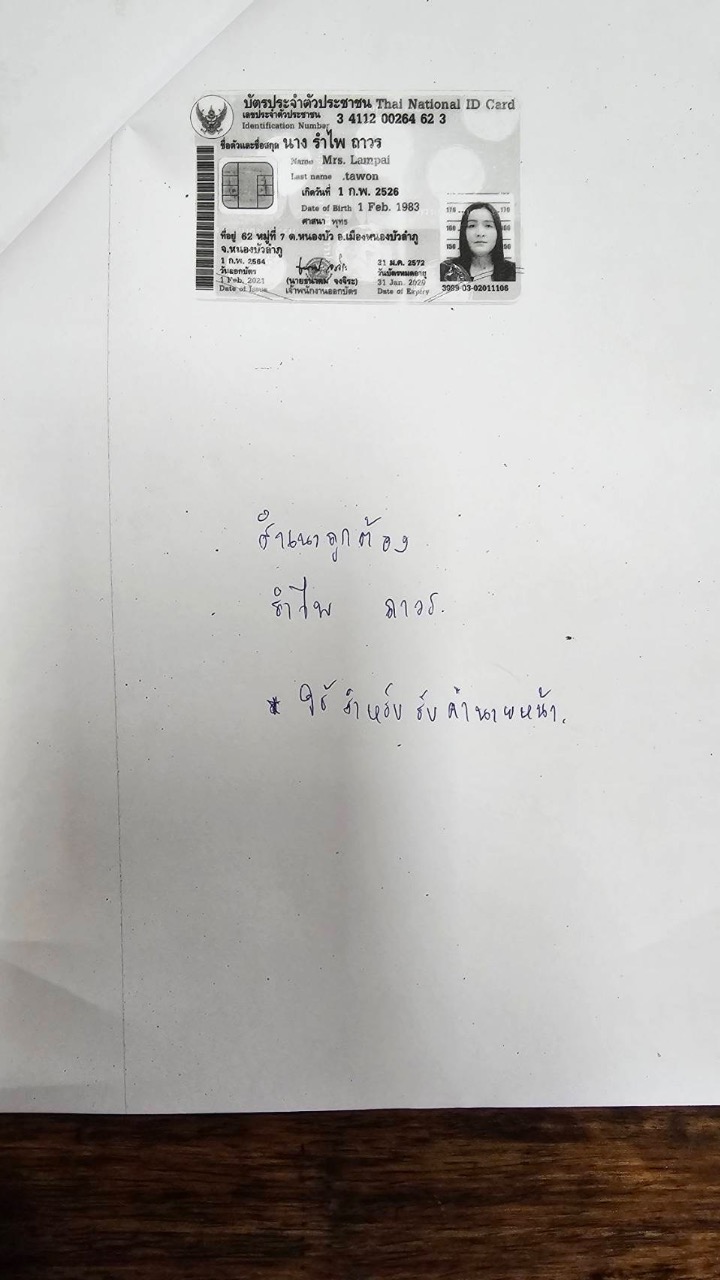 บัตรประจำตัวประชาชน Thai National ID Card
เลขประจำตัวประชาชน 3 4112 00264 62 3
Identification Number
ชื่อตัวและชื่อสกุล นาง รำไพ ถาวร
Name Mrs. Lampai
Last name .tawon
เกิดวันที่ 1 ก.พ. 2526
Date of Birth 1 Feb. 1983
ศาสนา พุทธ
ที่อยู่ 62 หมู่ที่ 7 ต.หนองบัว อ.เมืองหนองบัวลำภู
จ.หนองบัวลำภู
1 ก.พ. 2564
วันออกบัตร
1 Feb. 2021
Date of Issue
เจ้าพนักงานออกบัตร
31 ม.ค. 2572
วันบัตรหมดอายุ
31 Jan. 2029
Date of Expiry
3999-03-02011106
สำเนาถูกต้อง
รำไพ ถาวร.
* ใช้สำหรับรับค่านายหน้า.